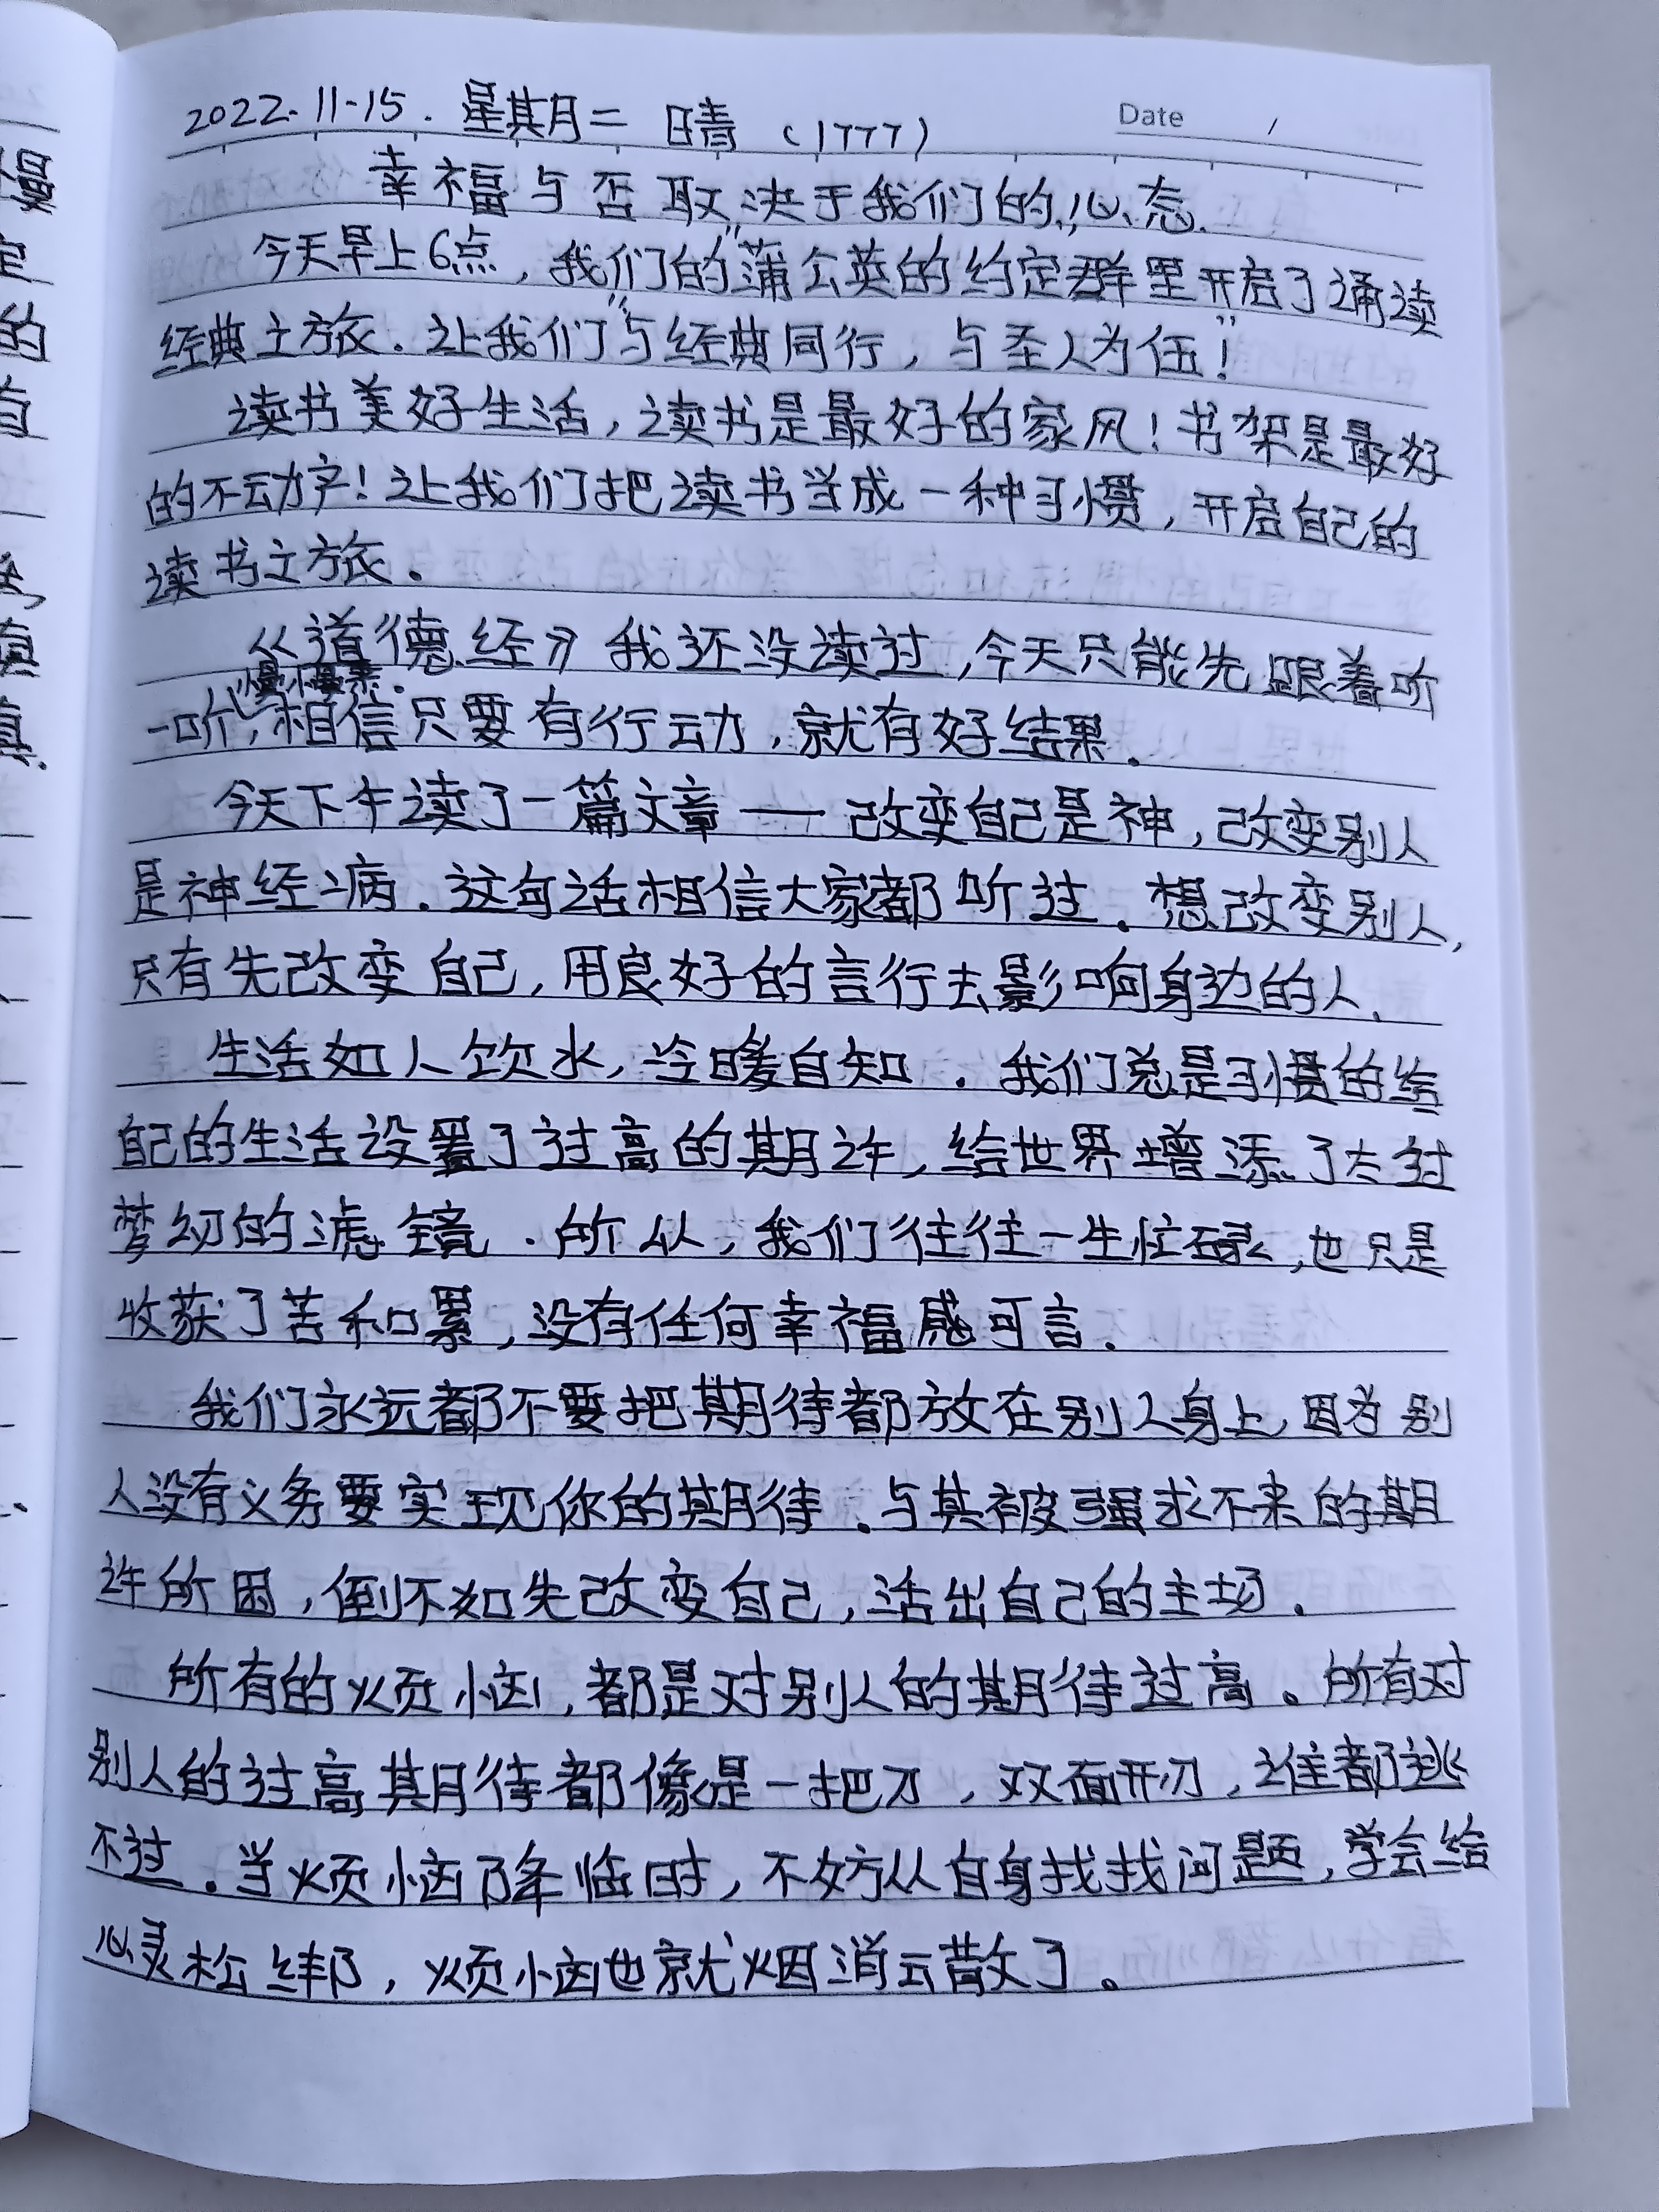 2022.11-15. 星期二 晴 (1777)
Date /
幸福与否取决于我们的心态.
今天早上6点,我们的"蒲公英的约定群里开启了诵读
经典之旅.让我们"与经典同行,与圣人为伍"!
读书美好生活,读书是最好的家风!书架是最好
的不动产!让我们把读书当成一种习惯,开启自己的
读书之旅.
《道德经》我还没读过,今天只能先跟着听
慢慢来.
一听,相信只要有行动,就有好结果.
今天下午读了一篇文章——改变自己是神,改变别人
是神经病.这句话相信大家都听过.想改变别人,
只有先改变自己,用良好的言行去影响身边的人.
生活如人饮水,冷暖自知.我们总是习惯的给
自己的生活设置了过高的期许,给世界增添了太过
梦幻的滤镜.所以,我们往往一生忙碌,也只是
收获了苦和累,没有任何幸福感可言.
我们永远都不要把期待都放在别人身上,因为别
人没有义务要实现你的期待.与其被强求不来的期
许所困,倒不如先改变自己,活出自己的主场.
所有的烦恼,都是对别人的期待过高。所有对
别人的过高期待都像是一把刀,双面开刃,谁都逃
不过.当烦恼降临时,不妨从自身找找问题,学会给
心灵松绑,烦恼也就烟消云散了。